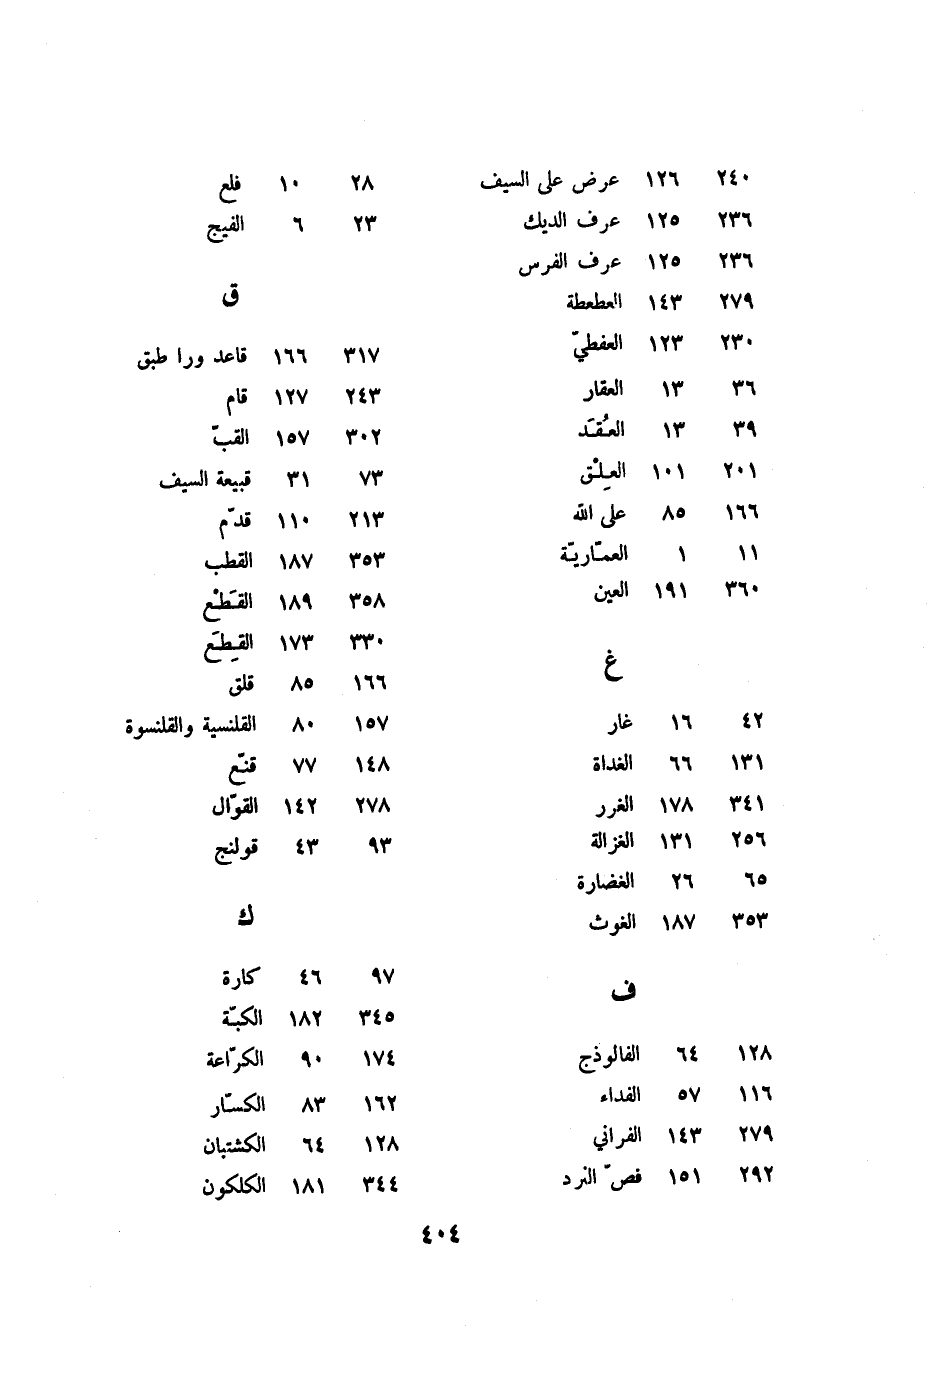 ٢٤٠ ١٢٦ عرض على السيف
٢٣٦ ١٢٥ عرف الديك
٢٣٦ ١٢٥ عرف الفرس
٢٧٩ ١٤٣ العطعطة
٢٣٠ ١٢٣ العفطيّ
٣٦ ١٣ العقار
٣٩ ١٣ العُقَد
٢٠١ ١٠١ العِلْق
١٦٦ ٨٥ على الله
١١ ١ العمّاريّة
٣٦٠ ١٩١ العين
غ
٤٢ ١٦ غار
١٣١ ٦٦ الغداة
٣٤١ ١٧٨ الغرر
٢٥٦ ١٣١ الغزالة
٦٥ ٢٦ الغضارة
٣٥٣ ١٨٧ الغوث
ف
١٢٨ ٦٤ الفالوذج
١١٦ ٥٧ الفداء
٢٧٩ ١٤٣ الفراني
٢٩٢ ١٥١ فصّ النرد
٢٨ ١٠ فلع
٢٣ ٦ الفيج
ق
٣١٧ ١٦٦ قاعد ورا طبق
٢٤٣ ١٢٧ قام
٣٠٢ ١٥٧ القبّ
٧٣ ٣١ قبيعة السيف
٢١٣ ١١٠ قدّم
٣٥٣ ١٨٧ القطب
٣٥٨ ١٨٩ القَطْع
٣٣٠ ١٧٣ القِطَع
١٦٦ ٨٥ قلق
١٥٧ ٨٠ القلنسية والقلنسوة
١٤٨ ٧٧ قنّع
٢٧٨ ١٤٢ القوّال
٩٣ ٤٣ قولنج
ك
٩٧ ٤٦ كارة
٣٤٥ ١٨٢ الكبّة
١٧٤ ٩٠ الكرّاعة
١٦٢ ٨٣ الكسّار
١٢٨ ٦٤ الكشتبان
٣٤٤ ١٨١ الكلكون
٤٠٤